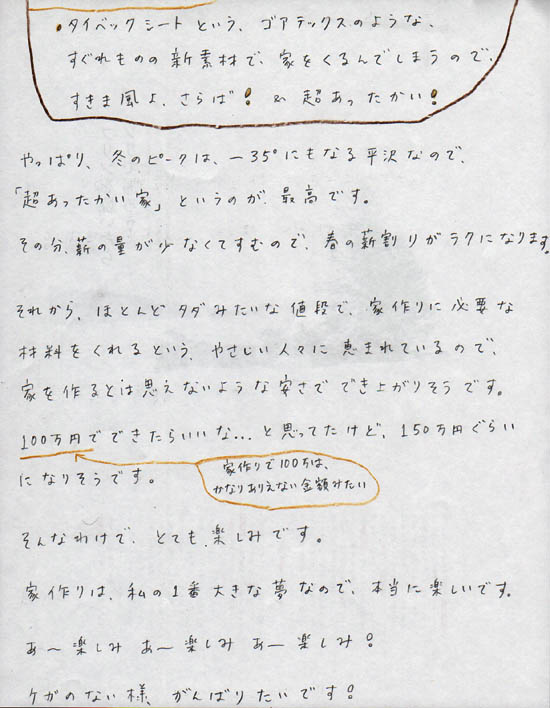 •タイベックシートという、ゴアテックスのような、
すぐれものの新素材で、家をくるんでしまうので、
すきま風よ、さらば! 超あったかい!
やっぱり、冬のピークは、−35°にもなる平沢なので、
「超あったかい家」というのが、最高です。
その分、薪の量が少なくてすむので、春の薪割りがラクになります。
それから、ほとんどタダみたいな値段で、家作りに必要な
材料をくれるという、やさしい人々に恵まれているので、
家を作るとは思えないような安さででき上がりそうです。
100万円でできたらいいな...と思ってたけど、150万円ぐらい
になりそうです。
家作りで100万は、
かなりありえない金額みたい
そんなわけで、とても楽しみです。
家作りは、私の1番大きな夢なので、本当に楽しいです。
あ〜楽しみ あ〜楽しみ あ〜楽しみ!
ケガのない様、がんばりたいです!